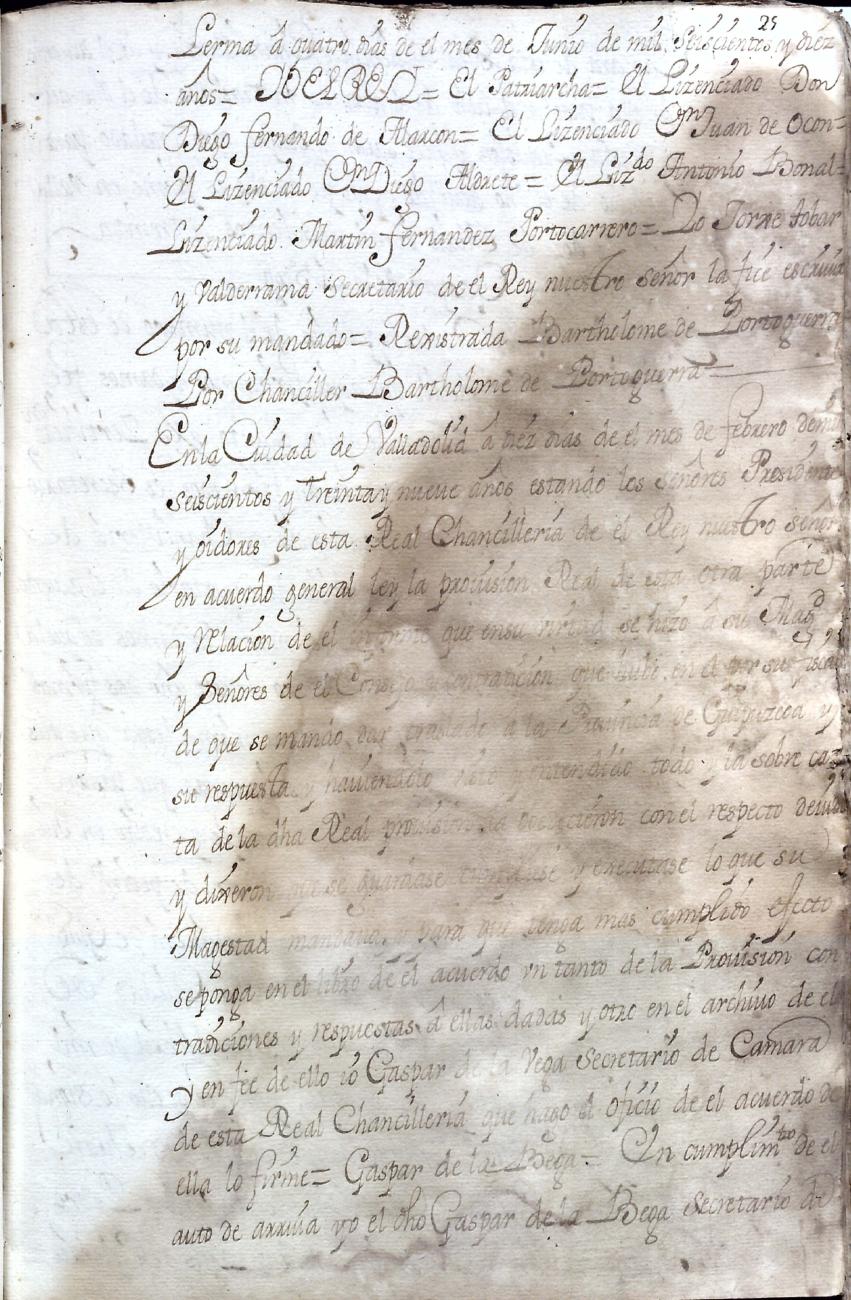 25
Lerma á quatro dias de el mes de Junio de mil Seiscientos y diez
años= YO EL REY= El Patriarcha= El Lizenciado Don
Diego fernando de Alarcon= El Lizenciado Don Juan de Ocon=
El Lizenciado Don Diego Aldrete= El Lizdo Antonio Bonal=
Lizenciado Martin fernandez Portocarrero= Yo Jorxe tobar
y Valderrama Secretario de el Rey nuestro señor la fice escriuir
por su mandado= Rexistrada Bartholome de Portoguerra
Por Chanciller Bartholome de Portoguerra=
En la Ciudad de Valladolid á diez dias de el mes de febrero de mill
seiscientos y treinta y nueve años estando los Señores Presidente
y oidores de esta Real Chancilleria de el Rey nuestro señor
en acuerdo general ley la provission Real de esta otra parte
y relacion de el informe que en su virtud se hizo á su Magd
y Señores de el Consejo y contradicion que hubo en el por su fiscal
de que se mando dar traslado a la Provincia de Guipuzcoa y
su respuesta y haviendolo visto y entendido todo y la sobre car
ta de la dha Real provission la ovedecieron con el respecto deuido
y dixeron que se guardase cumpliese y executase lo que su
Magestad mandaua, y para que tenga mas cumplido efecto
se ponga en el libro de el acuerdo vn tanto de la Provision con
tradiciones y respuestas á ellas dadas y otro en el archiuo de el
y en fee de ello io Gaspar de la Vega Secretario de Camara
de esta Real Chancilleria que hago el oficio de el acuerdo de
ella lo firme= Gaspar de la Bega= En cumplimto de el
auto de arriua yo el dho Gaspar de la Bega Secretario de